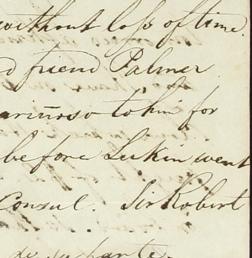 without loss of time.
d friend Palmer
to him for
before Lukin went
Consul. Sir Robert